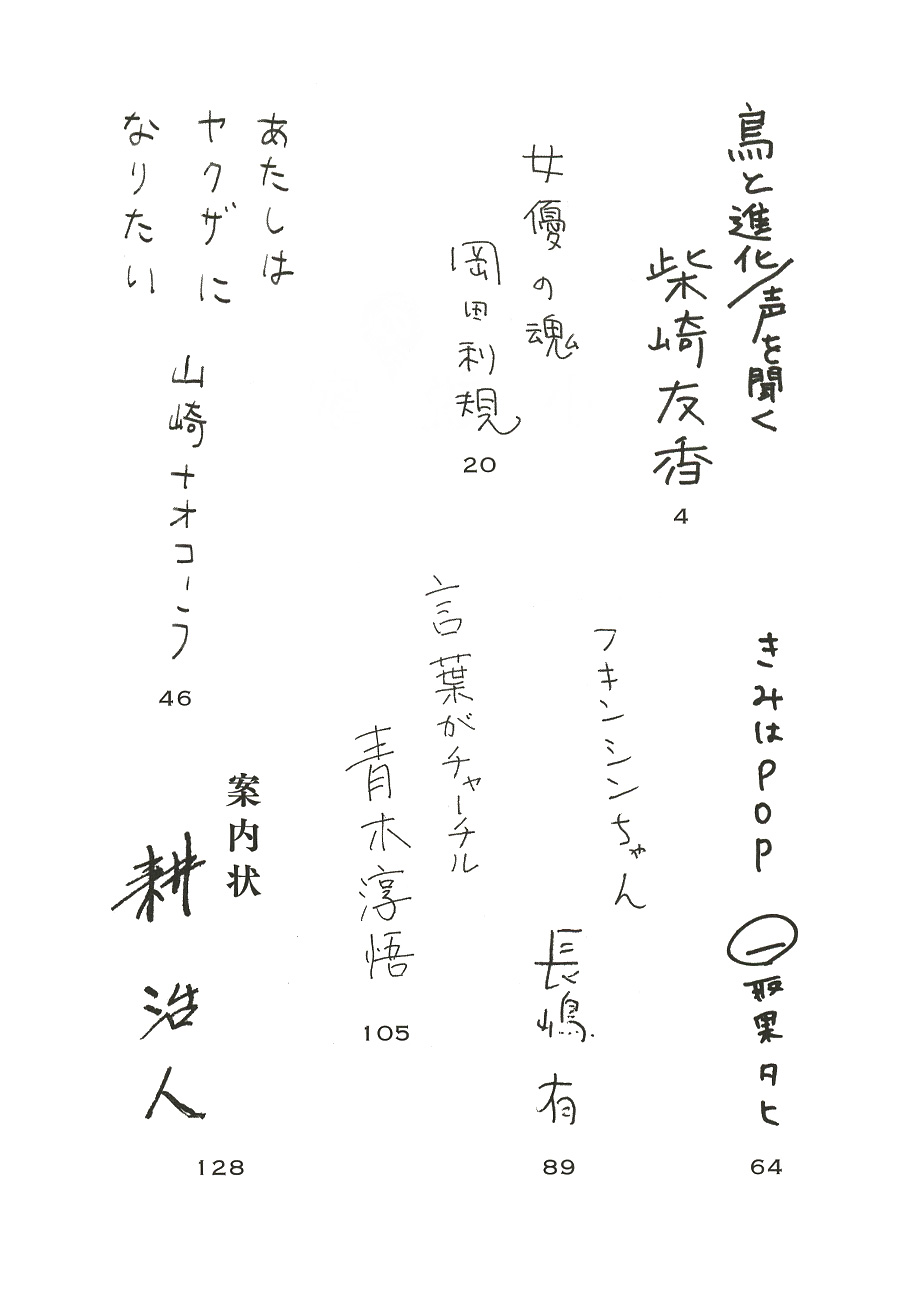 鳥と進化/声を聞く
柴崎友香
4
女優の魂
岡田利規
20
あたしは
ヤクザに
なりたい
山崎ナオコーラ
46
きみはPOP
最果タヒ
64
フキンシンちゃん
長嶋有
89
言葉がチャーチル
青木淳悟
105
案内状
耕治人
128